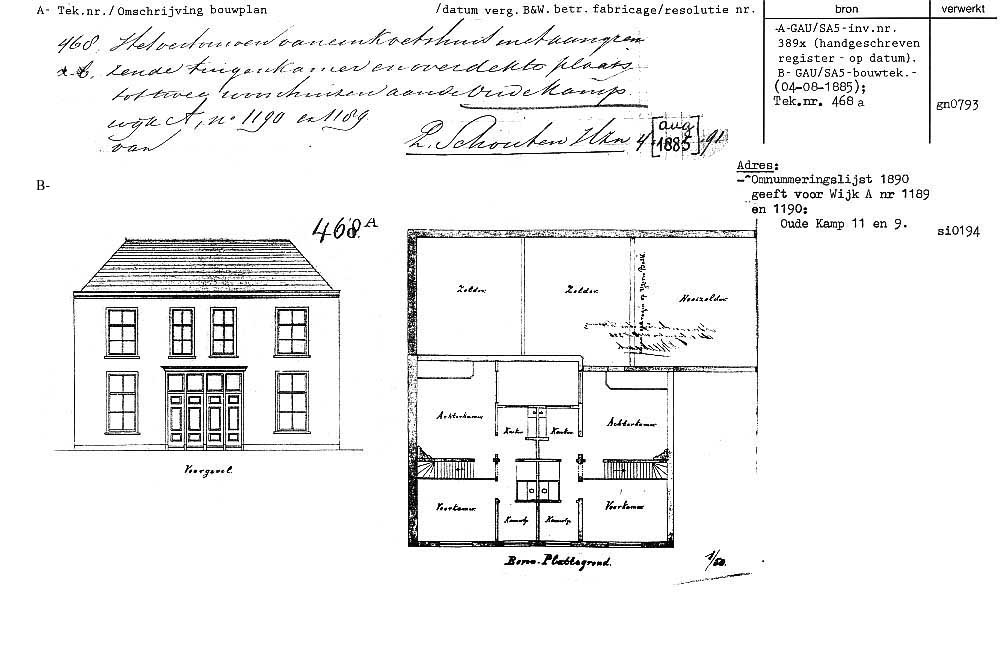 A- Tek.nr./Omschrijving bouwplan /datum verg. B&W. betr. fabricage/resolutie nr.
bron
verwerkt
468. Het verbouwen van een koetshuis met aangren
a-b. zende tuigenkamer en overdekte plaats
tot twee woonhuizen aan de Oude Kamp.
wijk A, no 1190 en 1189
van
L. Schouten Hzn 4 [aug 1885] 91
-A-GAU/SA5-inv.nr.
389x (handgeschreven
register - op datum).
B- GAU/SA5-bouwtek.-
(04-08-1885);
Tek.nr. 468 a
gn0793
Adres:
-^Omnummeringslijst 1890
geeft voor Wijk A nr 1189
en 1190:
Oude Kamp 11 en 9.
si0194
B-
468.A
Voorgevel.
Zolder.
Zolder.
Hooizolder
Achterkamer
Kasten
Kasten
Achterkamer
Voorkamer
Kamertje
Kamertje
Voorkamer
Boven-Plattegrond.
1/50.